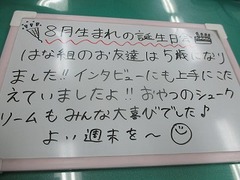 8月生まれの誕生日会
はな組のお友達は5歳になり
ました!!インタビューにも上手にこた
えていましたよ!!おやつのシューク
リームもみんな大喜びでした♪
よい週末を〜